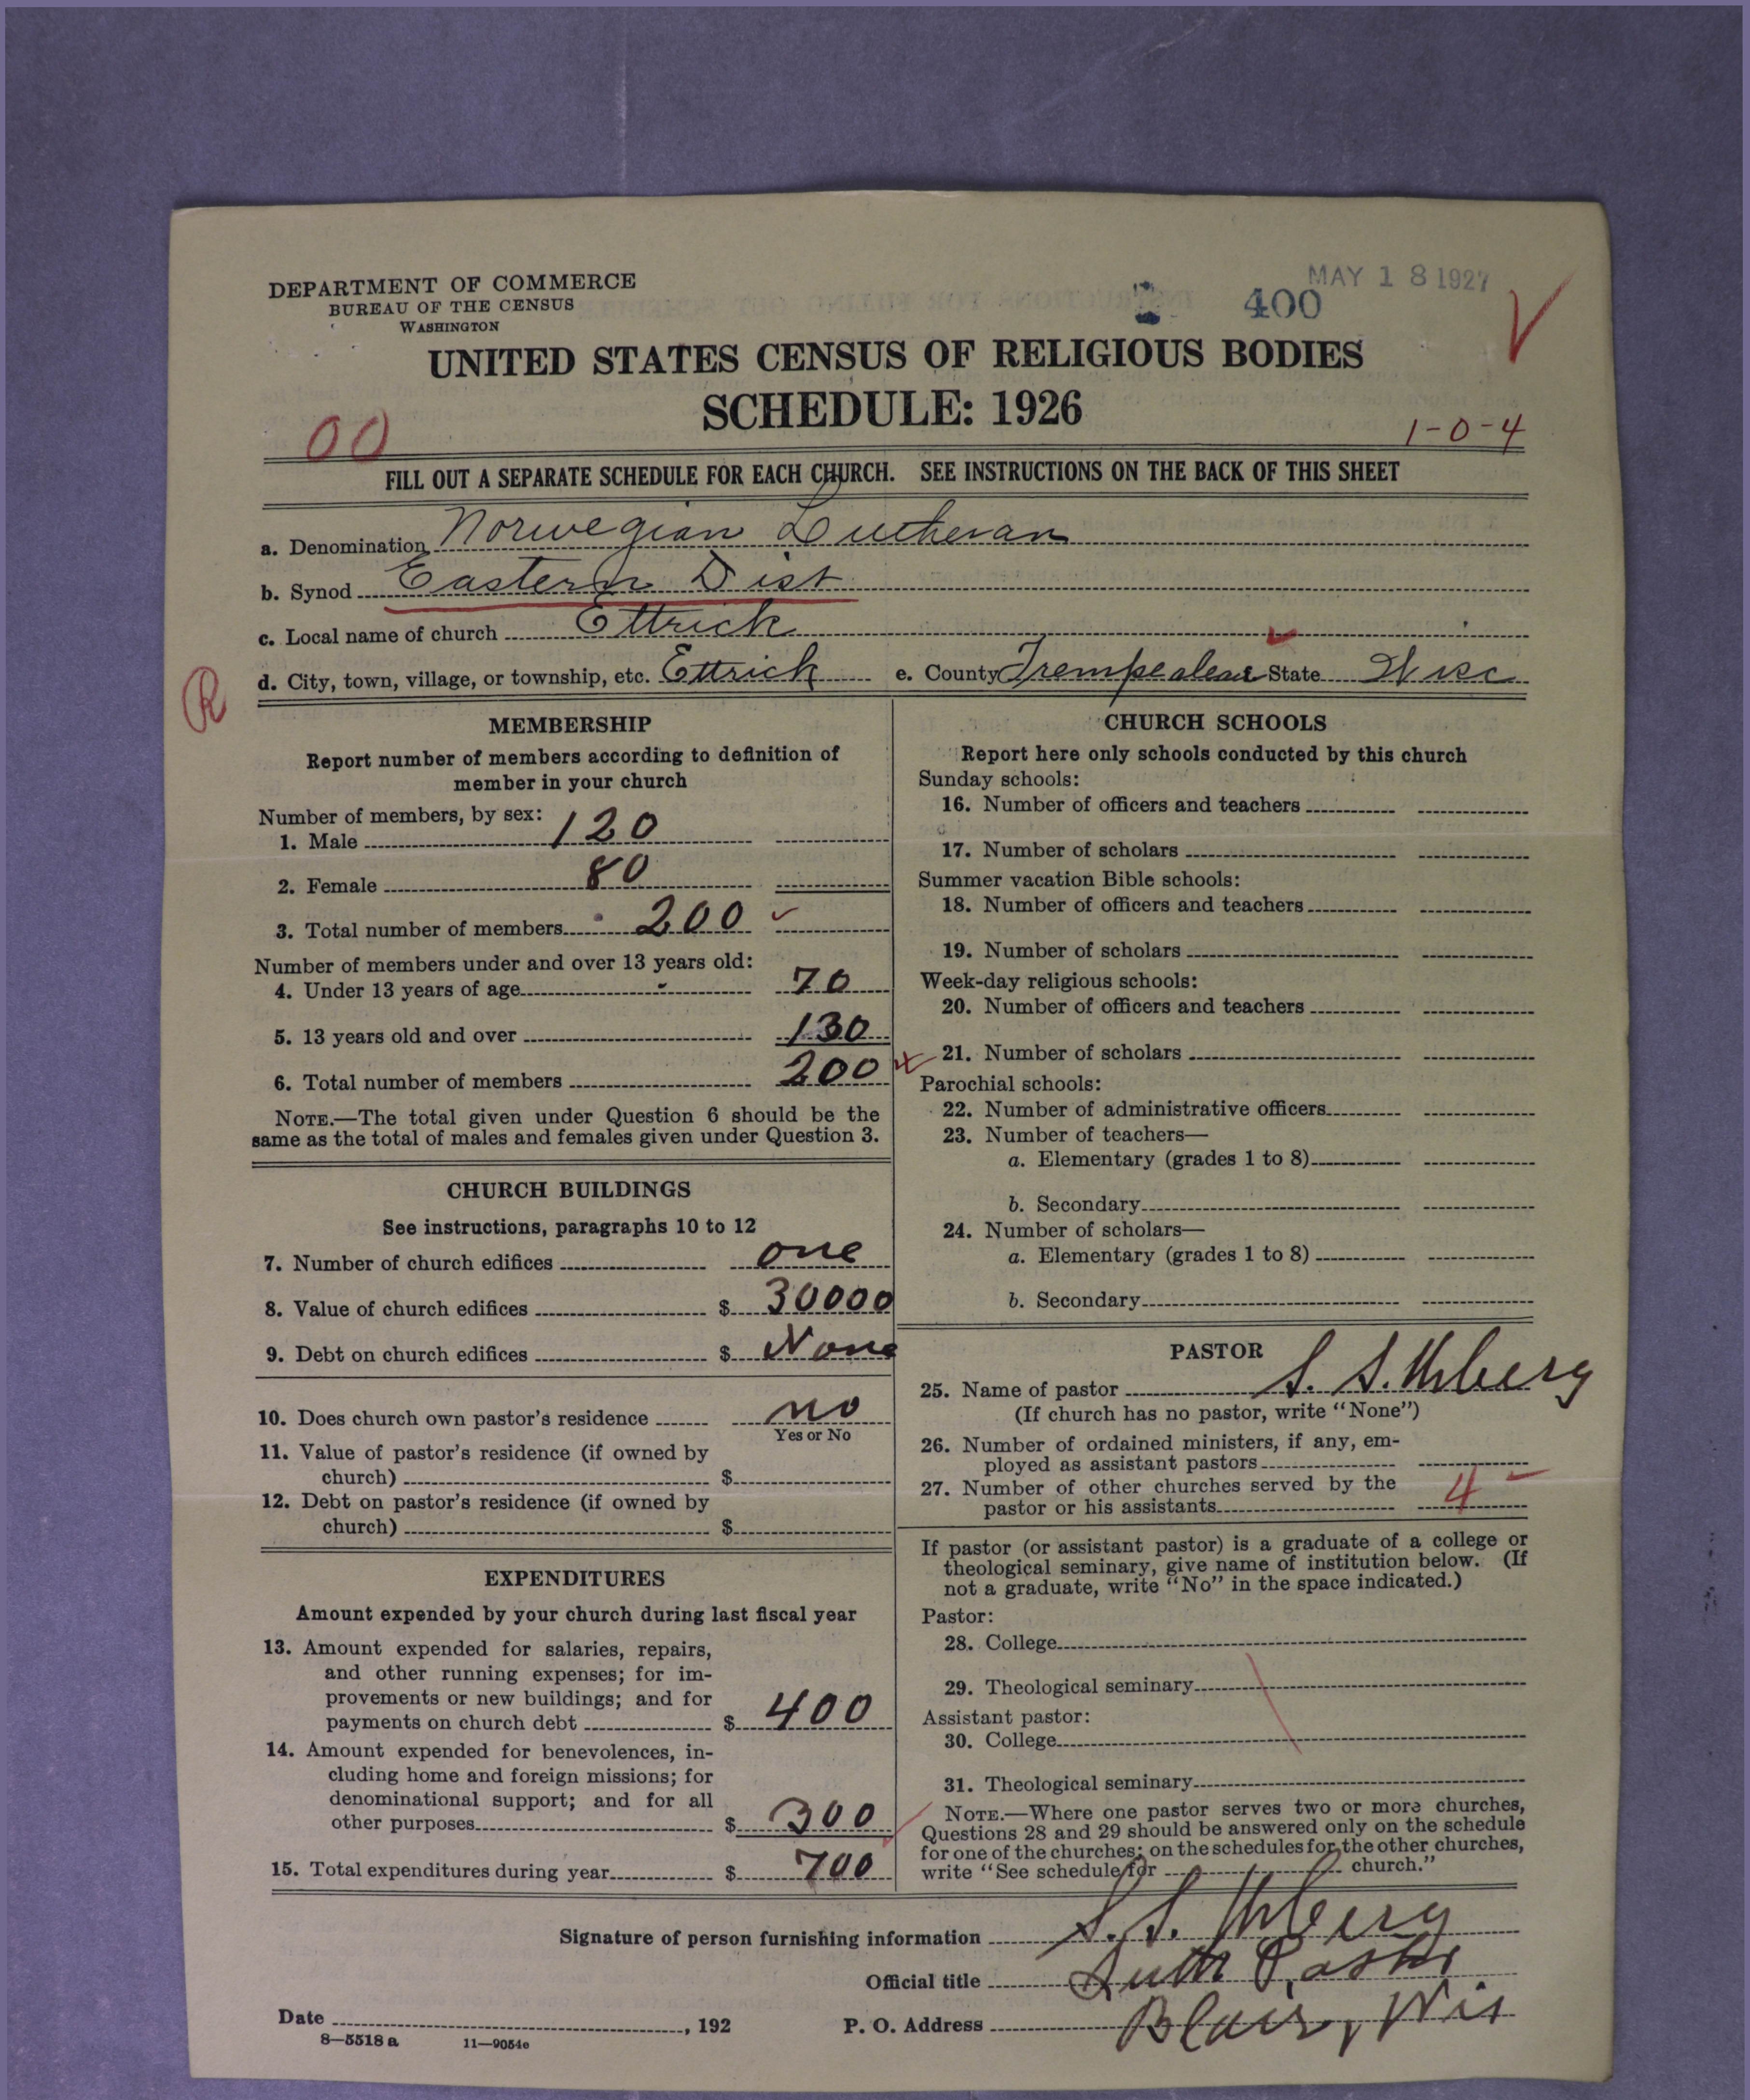 DEPARTMENT OF COMMERCE
BUREAU OF THE CENSUS
WASHINGTON
MAY 18 1927
400
UNITED STATES CENSUS OF RELIGIOUS BODIES
SCHEDULE: 1926
00
1-0-4
FILL OUT A SEPARATE SCHEDULE FOR EACH CHURCH. SEE INSTRUCTIONS ON THE BACK OF THIS SHEET
a. Denomination Norwegian Lutheran
b. Synod Eastern Dist
c. Local name of church Ettrick
d. City, town, village, or township, etc. Ettrick e. County Trempealeau State Wisc
R
MEMBERSHIP
Report number of members according to definition of
member in your church
Number of members, by sex:
1. Male 120
2. Female 80
3. Total number of members 200
Number of members under and over 13 years old:
4. Under 13 years of age 70
5. 13 years old and over 130
6. Total number of members 200
NOTE.—The total given under Question 6 should be the
same as the total of males and females given under Question 3.
CHURCH BUILDINGS
See instructions, paragraphs 10 to 12
7. Number of church edifices one
8. Value of church edifices $ 30000
9. Debt on church edifices $ None
10. Does church own pastor's residence no
Yes or No
11. Value of pastor's residence (if owned by
church) $
12. Debt on pastor's residence (if owned by
church) $
EXPENDITURES
Amount expended by your church during last fiscal year
13. Amount expended for salaries, repairs,
and other running expenses; for im-
provements or new buildings; and for
payments on church debt $ 400
14. Amount expended for benevolences, in-
cluding home and foreign missions; for
denominational support; and for all
other purposes $ 300
15. Total expenditures during year $ 700
CHURCH SCHOOLS
Report here only schools conducted by this church
Sunday schools:
16. Number of officers and teachers
17. Number of scholars
Summer vacation Bible schools:
18. Number of officers and teachers
19. Number of scholars
Week-day religious schools:
20. Number of officers and teachers
21. Number of scholars
Parochial schools:
22. Number of administrative officers
23. Number of teachers—
a. Elementary (grades 1 to 8)
b. Secondary
24. Number of scholars—
a. Elementary (grades 1 to 8)
b. Secondary
PASTOR
25. Name of pastor S. S. Urberg
(If church has no pastor, write "None")
26. Number of ordained ministers, if any, em-
ployed as assistant pastors
27. Number of other churches served by the
pastor or his assistants 4
If pastor (or assistant pastor) is a graduate of a college or
theological seminary, give name of institution below. (If
not a graduate, write "No" in the space indicated.)
Pastor:
28. College
29. Theological seminary
Assistant pastor:
30. College
31. Theological seminary
NOTE.—Where one pastor serves two or more churches,
Questions 28 and 29 should be answered only on the schedule
for one of the churches; on the schedules for the other churches,
write "See schedule for church."
Signature of person furnishing information S. S. Urberg
Official title Luth Pastor
Date , 192 P. O. Address Blair, Wis
8—5518 a 11—9054e